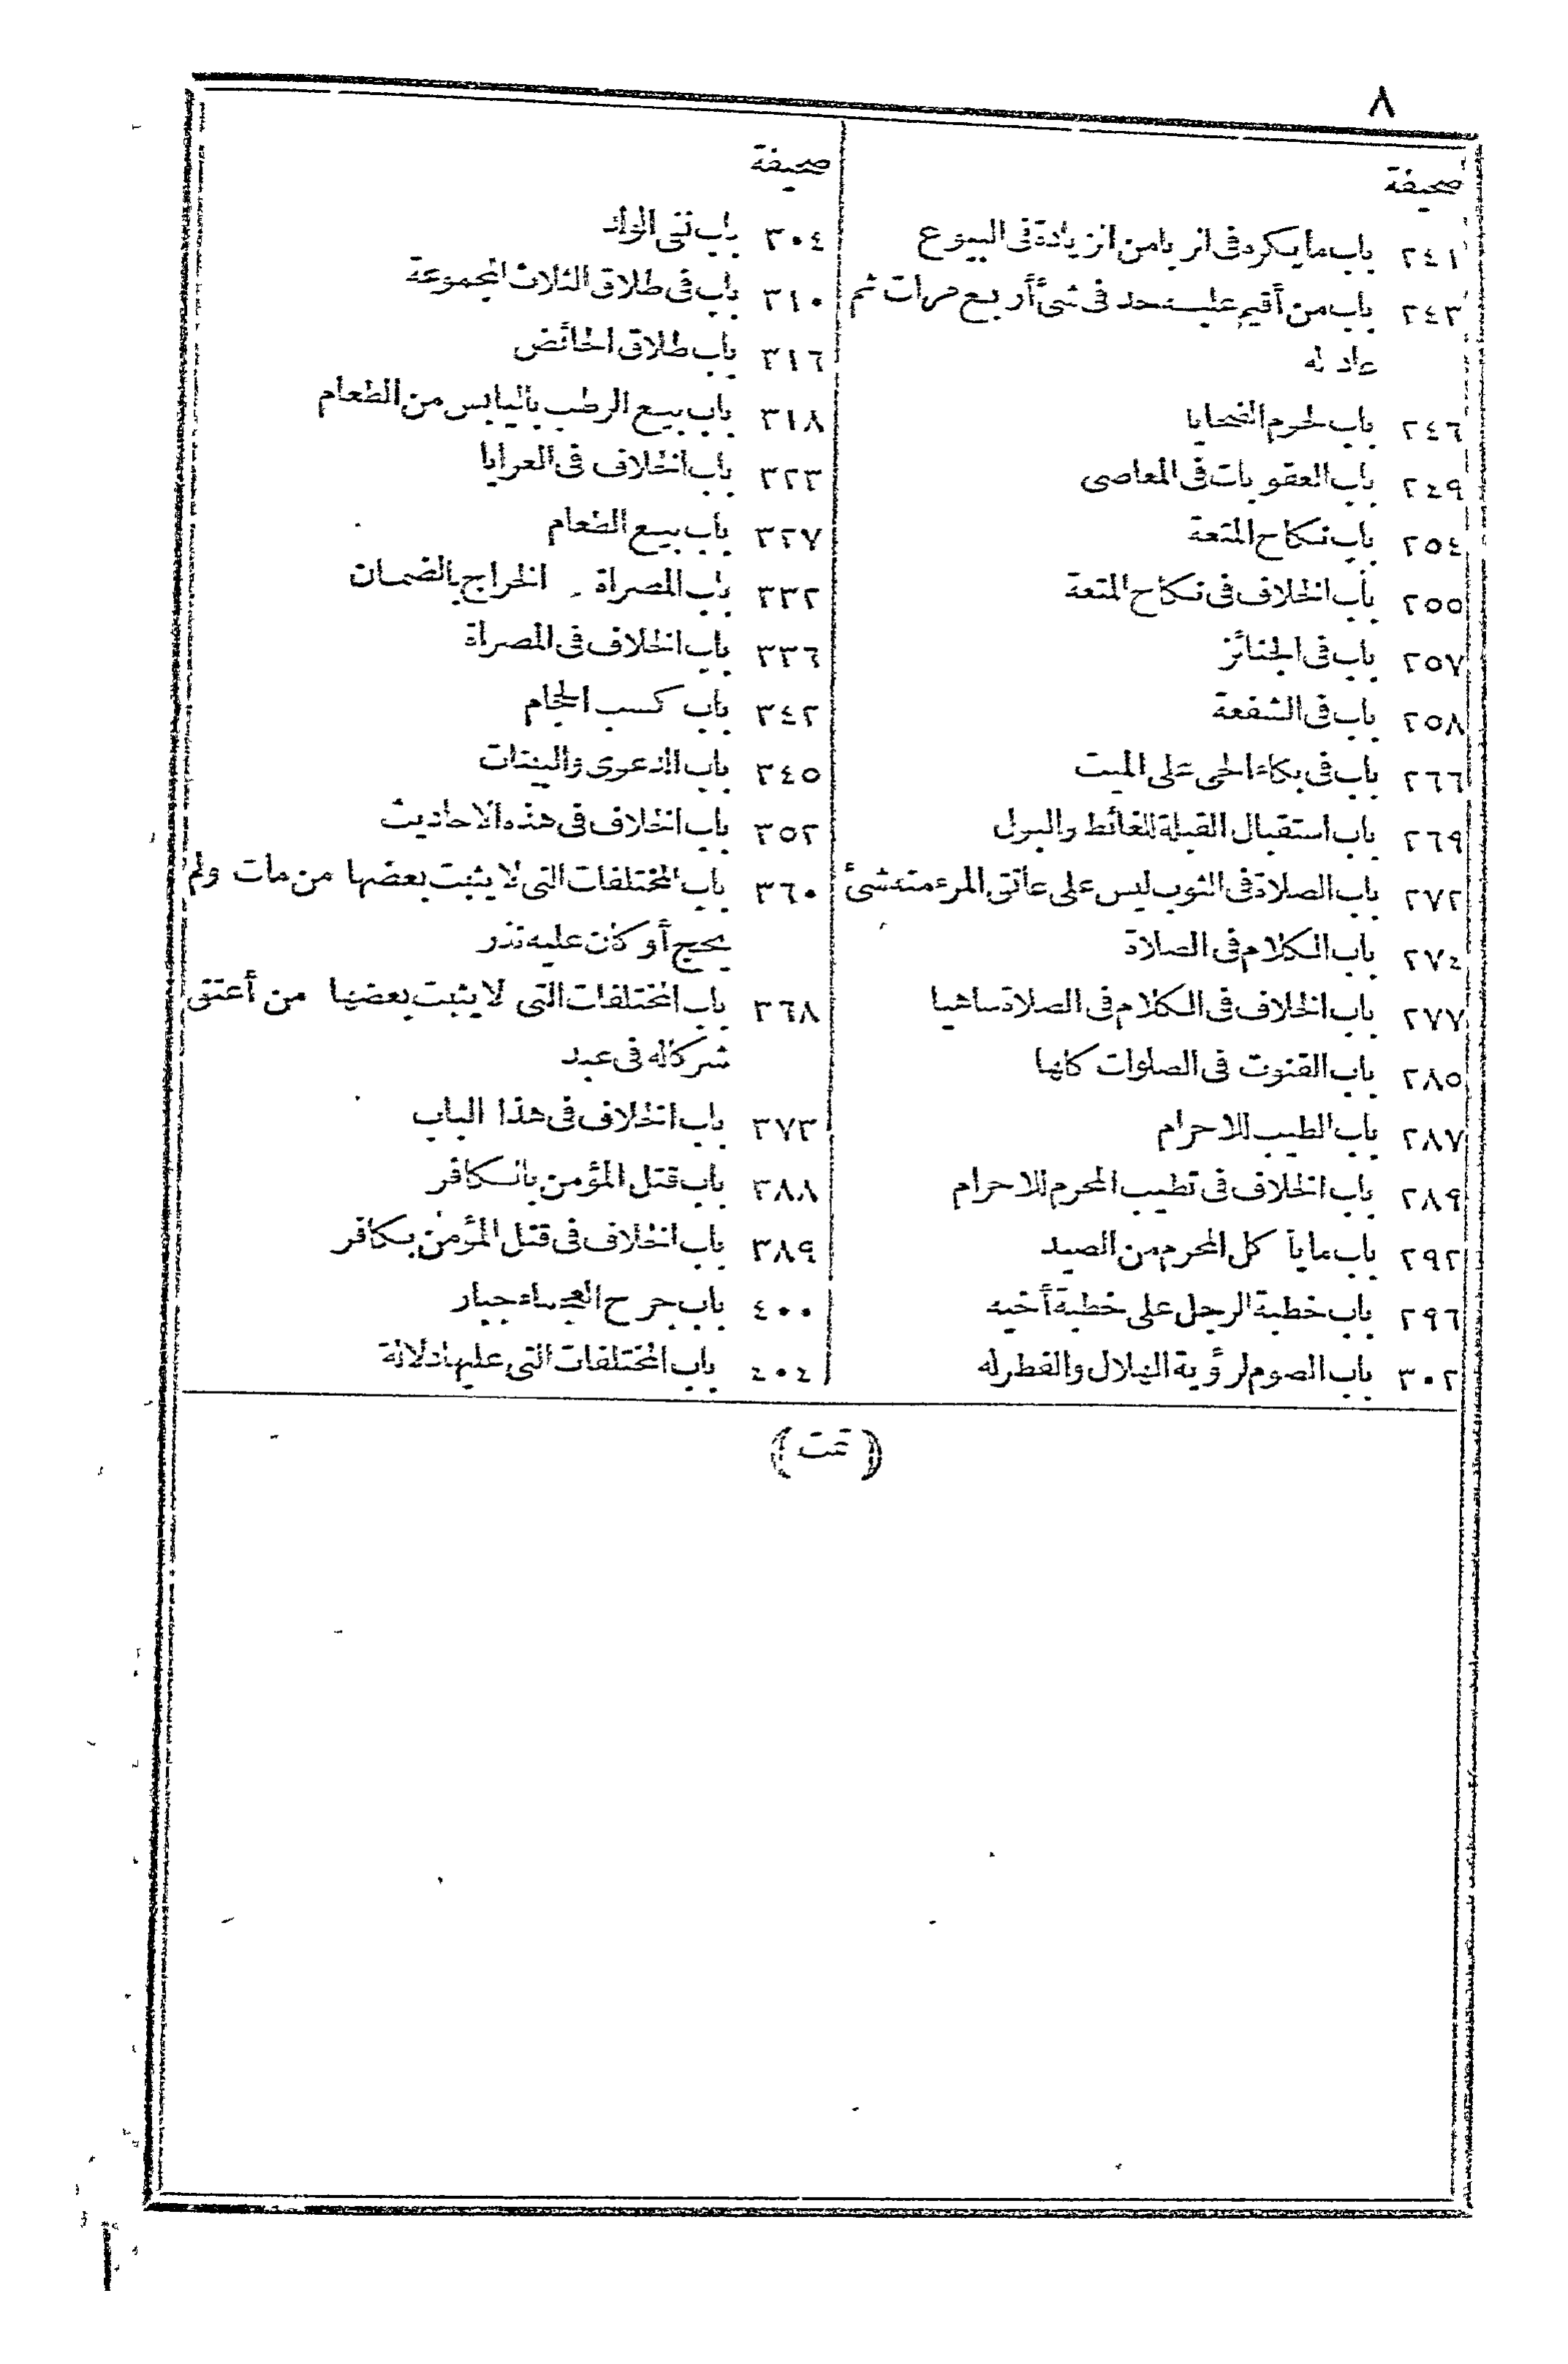 ٨
صحيفة
٢٤١ باب ما يكره فى الربا من الزيادة فى البيوع
٢٤٣ باب من أقيم عليه حد فى شئ أربع مرات ثم
عاد له
٢٤٦ باب لحوم الضحايا
٢٤٩ باب العقوبات فى المعاصى
٢٥٤ باب نكاح المتعة
٢٥٥ باب الخلاف فى نكاح المتعة
٢٥٧ باب فى الجنائز
٢٥٨ باب فى الشفعة
٢٦٦ باب فى بكاء الحى على الميت
٢٦٩ باب استقبال القبلة للغائط والبول
٢٧٢ باب الصلاة فى الثوب ليس على عاتق المرء منه شئ
٢٧٤ باب الكلام فى الصلاة
٢٧٧ باب الخلاف فى الكلام فى الصلاة ساهيا
٢٨٥ باب القنوت فى الصلوات كلها
٢٨٧ باب الطيب للاحرام
٢٨٩ باب الخلاف فى تطيب المحرم للاحرام
٢٩٢ باب ما يأ كل المحرم من الصيد
٢٩٦ باب خطبة الرجل على خطبة أخيه
٣٠٢ باب الصوم لرؤية الهلال والفطر له
صحيفة
٣٠٤ باب نفى الولد
٣١٠ باب فى طلاق الثلاث المجموعة
٣١٦ باب طلاق الحائض
٣١٨ باب بيع الرطب باليابس من الطعام
٣٢٣ باب الخلاف فى العرايا
٣٢٧ باب بيع الطعام
٣٣٢ باب المصراة . الخراج بالضمان
٣٣٦ باب الخلاف فى المصراة
٣٤٢ باب كسب الحجام
٣٤٥ باب الدعوى والبينات
٣٥٢ باب الخلاف فى هذه الاحاديث
٣٦٠ باب المختلفات التى لا يثبت بعضها من مات ولم
يحج أو كان عليه نذر
٣٦٨ باب المختلفات التى لا يثبت بعضها من أعتق
شركا له فى عبد
٣٧٣ باب الخلاف فى هذا الباب
٣٨٨ باب قتل المؤمن بالكافر
٣٨٩ باب الخلاف فى قتل المؤمن بكافر
٤٠٠ باب جرح العجماء جبار
٤٠٤ باب المختلفات التى عليها دلالة
(تمت)